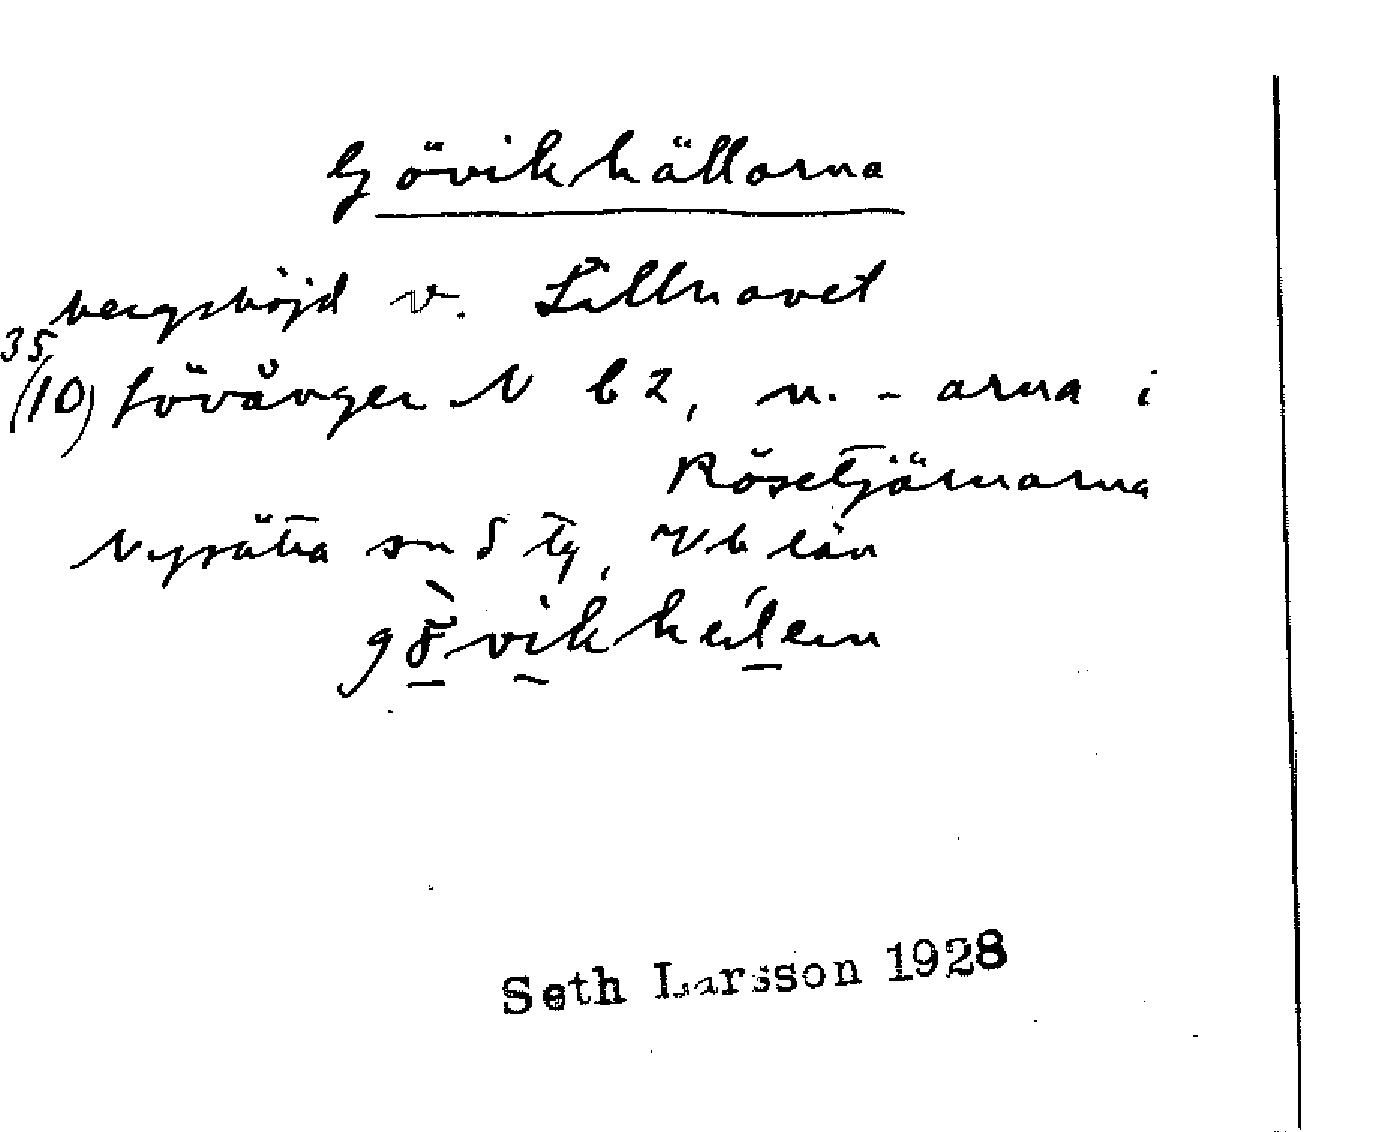 Gövikhällorna
bergshöjd v. Lillhavet
35
(10) Lövånger N b 2, n. - arna i
Rösetjärnarna
Nysätra sn S Tg, Vb län
Seth Larsson 1928